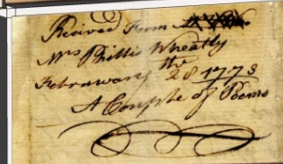 Recived From
Mrs Phillis Wheatly
Februwary the 28 1773
A Couple of Poems